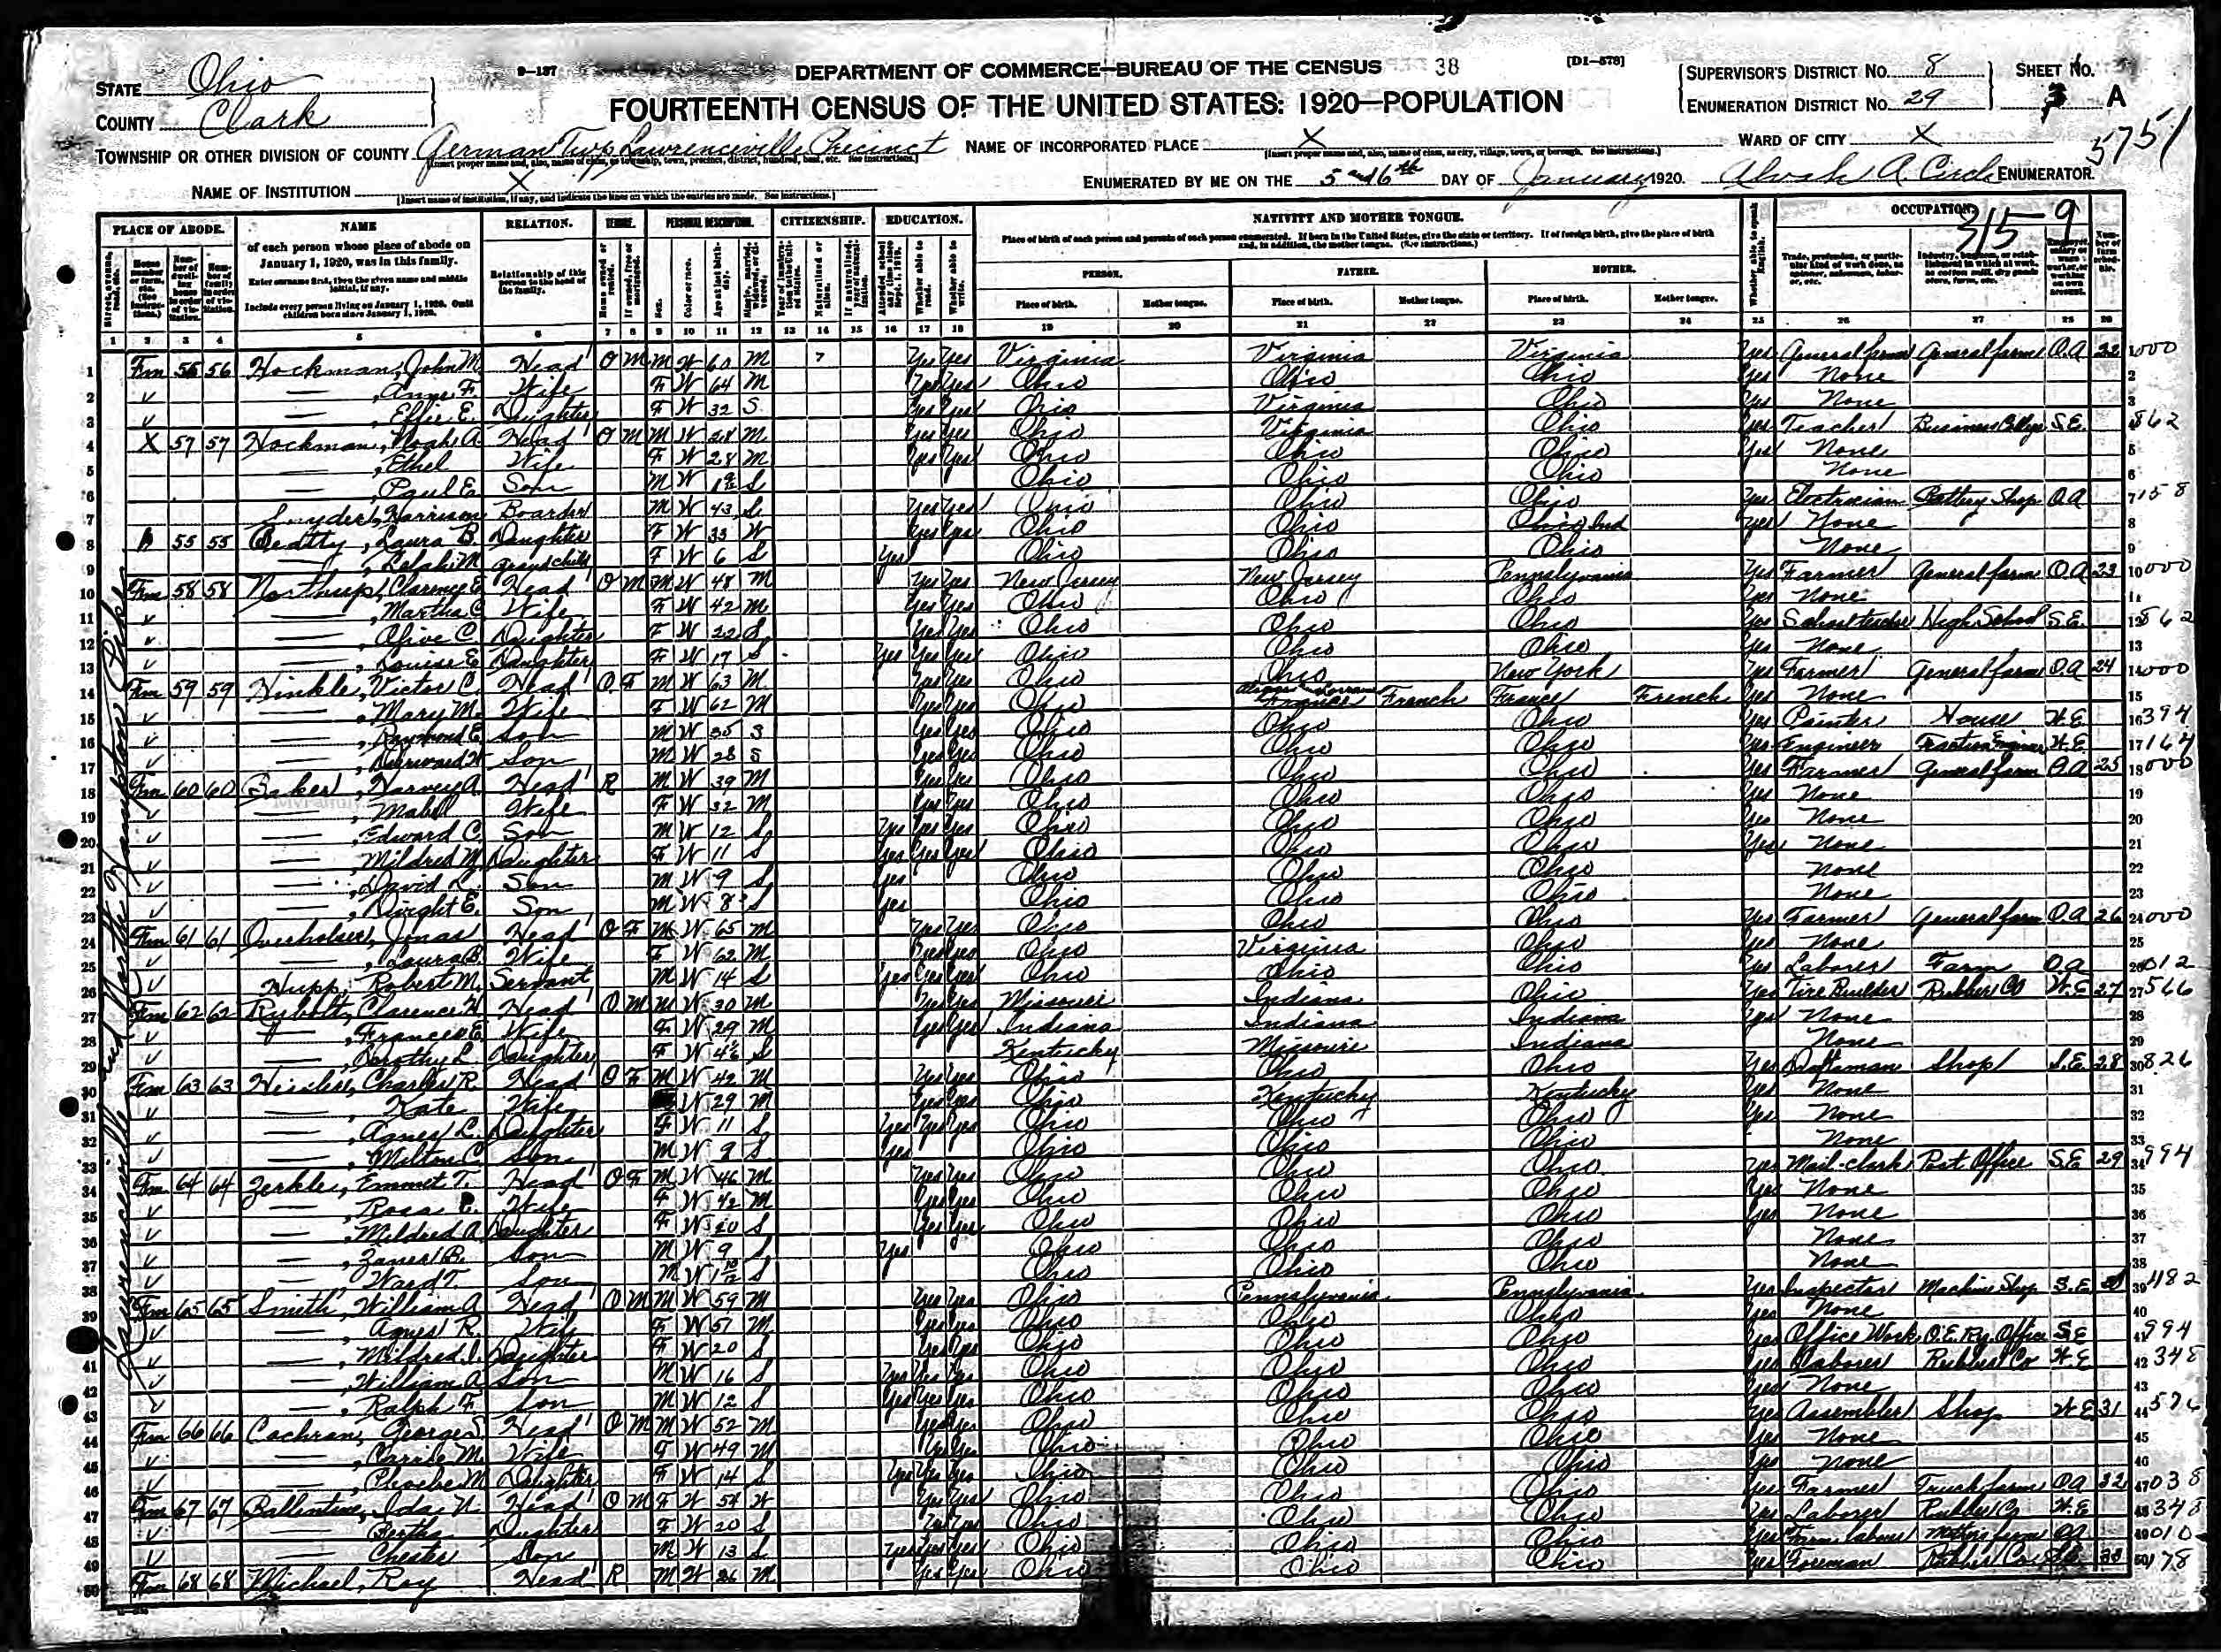 9-137 DEPARTMENT OF COMMERCE—BUREAU OF THE CENSUS 38 [D1-578]
STATE Ohio
COUNTY Clark
FOURTEENTH CENSUS OF THE UNITED STATES: 1920—POPULATION
SUPERVISOR'S DISTRICT NO. 8 SHEET NO.
ENUMERATION DISTRICT NO. 29 3 A
5751
TOWNSHIP OR OTHER DIVISION OF COUNTY German Twp Lawrenceville Precinct NAME OF INCORPORATED PLACE X WARD OF CITY X
NAME OF INSTITUTION X ENUMERATED BY ME ON THE 5 and 6th DAY OF January, 1920. Alvah A. Circle ENUMERATOR.
[Insert name of institution, if any, and indicate the lines on which the entries are made. See instructions.]
315-9
PLACE OF ABODE. NAME RELATION. TENURE. PERSONAL DESCRIPTION. CITIZENSHIP. EDUCATION. NATIVITY AND MOTHER TONGUE. OCCUPATION.
of each person whose place of abode on January 1, 1920, was in this family.
Enter surname first, then the given name and middle initial, if any.
Include every person living on January 1, 1920. Omit children born since January 1, 1920.
Relationship of this person to the head of the family.
Place of birth of each person and parents of each person enumerated. If born in the United States, give the state or territory. If of foreign birth, give the place of birth and, in addition, the mother tongue. (See instructions.)
PERSON. FATHER. MOTHER.
Place of birth. Mother tongue. Place of birth. Mother tongue. Place of birth. Mother tongue.
1 2 3 4 5 6 7 8 9 10 11 12 13 14 15 16 17 18 19 20 21 22 23 24 25 26 27 28 29
Lawrenceville and North Hampton Pike
1 Fm 56 56 Hockman, John M. Head O M M W 60 M Yes Yes Virginia Virginia Virginia Yes General farmer General farm O.A 22 000
2 — , Anna F. Wife F W 64 M Yes Yes Ohio Ohio Ohio Yes None
3 — , Effie E. Daughter F W 32 S Yes Yes Ohio Virginia Ohio Yes None
4 X 57 57 Hockman, Noah A. Head O M M W 28 M Yes Yes Ohio Virginia Ohio Yes Teacher Business College S.E. 862
5 — , Ethel Wife F W 28 M Yes Yes Ohio Ohio Ohio Yes None
6 — , Paul E. Son M W S Ohio Ohio Ohio None
7 Snyder, Harrison Boarder M W 43 S Yes Yes Ohio Ohio Ohio Yes Electrician Battery Shop O.A 158
8 55 55 Beatty, Laura B. Daughter F W 33 W Yes Yes Ohio Ohio Ind Yes None
9 — , Lelah M. Grandchild F W 6 S Yes Ohio Ohio Ohio None
10 Fm 58 58 Northrup, Clarence E. Head O M M W 48 M Yes Yes New Jersey New Jersey Pennsylvania Yes Farmer General farm O.A 23 000
11 — , Martha C. Wife F W 42 M Yes Yes Ohio Ohio Ohio Yes None
12 — , Olive C. Daughter F W 22 S Yes Yes Ohio Ohio Ohio Yes School teacher High School S.E. 862
13 — , Louise E. Daughter F W 17 S Yes Yes Yes Ohio Ohio Ohio Yes None
14 Fm 59 59 Hinkle, Victor C. Head O F M W 63 M Yes Yes Ohio Ohio New York Yes Farmer General farm O.A 24 000
15 — , Mary M. Wife F W 62 M Yes Yes Ohio Alsace Lorraine France French France French Yes None
16 — , Raymond E. Son M W 35 S Yes Yes Ohio Ohio Ohio Yes Painter House W.E. 394
17 — , Son M W 28 S Yes Yes Ohio Ohio Ohio Yes Engineer Traction Engine W.E. 164
18 Fm 60 60 Baker, Harvey A. Head R M W 39 M Yes Yes Ohio Ohio Ohio Yes Farmer General farm O.A 25 000
19 — , Mabel Wife F W 32 M Yes Yes Ohio Ohio Ohio Yes None
20 — , Edward C. Son M W 12 S Yes Yes Yes Ohio Ohio Ohio Yes None
21 — , Mildred M. Daughter F W 11 S Yes Yes Yes Ohio Ohio Ohio Yes None
22 — , David L. Son M W 9 S Yes Ohio Ohio Ohio None
23 — , Dwight E. Son M W 8 S Yes Ohio Ohio Ohio None
24 Fm 61 61 Overholser, Jonas Head O F M W 65 M Yes Yes Ohio Ohio Ohio Yes Farmer General farm O.A 26 000
25 — , Laura B. Wife F W 62 M Yes Yes Ohio Virginia Ohio Yes None
26 Hupp, Robert M. Servant M W 14 S Yes Yes Yes Ohio Ohio Ohio Yes Laborer Farm O.A 012
27 Fm 62 62 Rybolt, Clarence H. Head O M M W 30 M Yes Yes Missouri Indiana Ohio Yes Tire Builder Rubber Co W.E 27 566
28 — , Frances E. Wife F W 29 M Yes Yes Indiana Indiana Indiana Yes None
29 — , Dorothy L. Daughter F W S Kentucky Missouri Indiana None
30 Fm 63 63 Heisler, Charles R. Head O F M W 42 M Yes Yes Ohio Ohio Ohio Yes Draftsman Shop S.E 28 826
31 — , Kate Wife W 29 M Yes Yes Ohio Kentucky Kentucky Yes None
32 — , Agnes L. Daughter F W 11 S Yes Yes Yes Ohio Ohio Ohio Yes None
33 — , Milton C. Son M W 9 S Yes Ohio Ohio Ohio None
34 Fm 64 64 Zerkle, Emmet T. Head O F M W 46 M Yes Yes Ohio Ohio Ohio Yes Mail-clerk Post Office S.E 29 994
35 — , Rosa E. Wife F W 42 M Yes Yes Ohio Ohio Ohio Yes None
36 — , Mildred A. Daughter F W 20 S Yes Yes Ohio Ohio Ohio Yes None
37 — , B. Son M W 9 S Yes Ohio Ohio Ohio None
38 — , Ward T. Son M W 1 10/12 S Ohio Ohio Ohio None
39 Fm 65 65 Smith, William A. Head O M M W 59 M Yes Yes Ohio Pennsylvania Pennsylvania Yes Inspector Machine Shop S.E 482
40 — , Agnes R. Wife F W 51 M Yes Yes Ohio Ohio Ohio Yes None
41 — , Mildred I. Daughter F W 20 S Yes Yes Ohio Ohio Ohio Yes Office Work O.E. Ry. Office S.E 994
42 — , William A. Son M W 16 S Yes Yes Yes Ohio Ohio Ohio Yes Laborer Rubber Co W.E 348
43 — , Ralph F. Son M W 12 S Yes Yes Yes Ohio Ohio Ohio Yes None
44 Fm 66 66 Cochran, George S. Head O M M W 52 M Yes Yes Ohio Ohio Ohio Yes Assembler Shop W.E 31 576
45 — , Carrie M. Wife F W 49 M Yes Yes Ohio Ohio Ohio Yes None
46 — , Phoebe M. Daughter F W 14 S Yes Yes Yes Ohio Ohio Ohio Yes None
47 Fm 67 67 Ballentine, Ida N. Head O M F W 54 W Yes Yes Ohio Ohio Ohio Yes Farmer Truck farm O.A 32 038
48 — Bertha Daughter F W 20 S Yes Yes Ohio Ohio Ohio Yes Laborer Rubber Co W.E 348
49 — Chester Son M W 13 S Yes Yes Yes Ohio Ohio Ohio Yes Farm laborer Mothers farm O.A 010
50 Fm 68 68 Michael, Roy Head R M W 26 M Yes Yes Ohio Ohio Ohio Yes Foreman Rubber Co 33 178